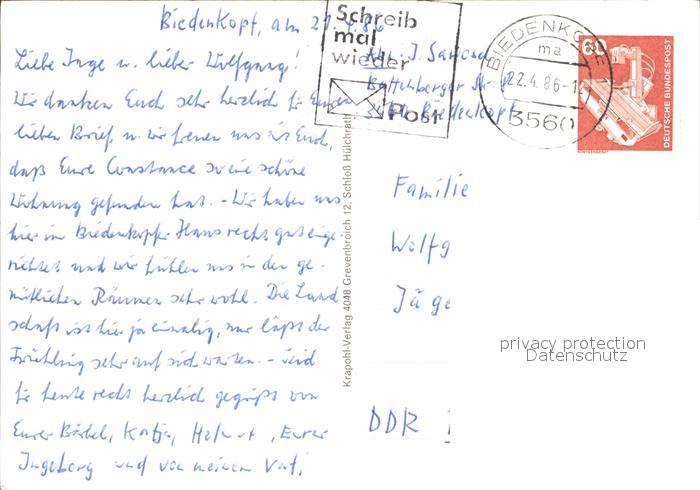 Biedenkopf, am 21.4.86
Liebe Inge u. lieber Wolfgang!
Wir danken Euch sehr herzlich für Euren
lieben Brief u. wir freuen uns für Euch,
daß Eure Constance so eine schöne
Wohnung gefunden hat. - Wir haben uns
hier im Biedenkopfer Haus recht gut einge-
richtet und wir fühlen uns in den ge-
mütlichen Räumen sehr wohl. Die Land
schaft ist hier ja einmalig, nur läßt der
Frühling sehr auf sich warten. - Seid
für heute recht herzlich gegrüßt von
Eurer Bärbel, Katja, Helmut, Eurer
Ingeborg und von meinem Vati,
Schreib
mal
wieder
Post
Abs. J.
Biedenkopf
BIEDENKOPF 1
ma
22.4.86-12
3560
60
DEUTSCHE BUNDESPOST
Krapohl-Verlag 4048 Grevenbroich 12, Schloß Hülchrath
Familie
Wolfg
Jäge
DDR
privacy protection
Datenschutz